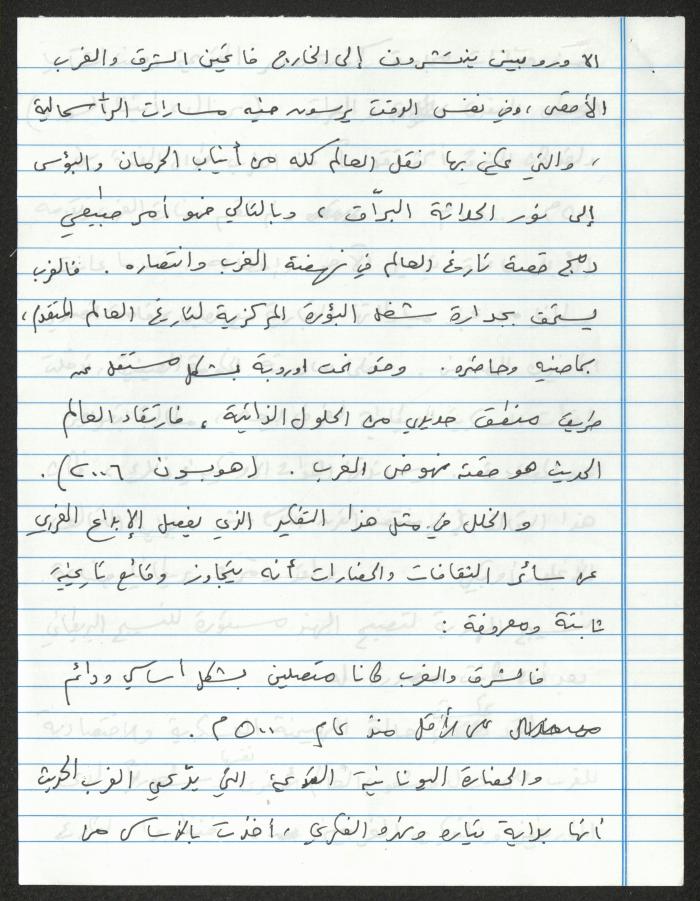 الاوروبيين ينتشرون إلى الخارج فاتحين الشرق والغرب
الأقصى ، وفي نفس الوقت يرسون فيه مسارات الرأسمالية
، والتي يمكن بها نقل العالم كله من أنياب الحرمان والبؤس
إلى نور الحداثة البرّاق ، وبالتالي فهو أمر طبيعي
دمج قصة تاريخ العالم في نهضة الغرب وانتصاره . فالغرب
يستحق بجدارة شغل البؤرة المركزية لتاريخ العالم المتقدم ،
بماضيه وحاضره . وقد نمت اوروبة بشكل مستقل عن
طريق منطق حديدي من الحلول الذاتية ، فارتقاء العالم
الحديث هو قصة نهوض الغرب . (هوبسون ٢٠٠٦) .
والخلل في مثل هذا التفكير الذي يفصل الإبداع الغربي
عن سائر الثقافات والحضارات أنه يتجاوز وقائع تاريخية
ثابتة ومعروفة :
فالشرق والغرب كانا متصلين بشكل أساسي ودائم
على الأقل منذ عام ٥٠٠ م .
والحضارة اليونانية القديمة التي يدّعي الغرب الحديث
أنها بداية تياره ونموه الفكري ، أخذت بالأساس من